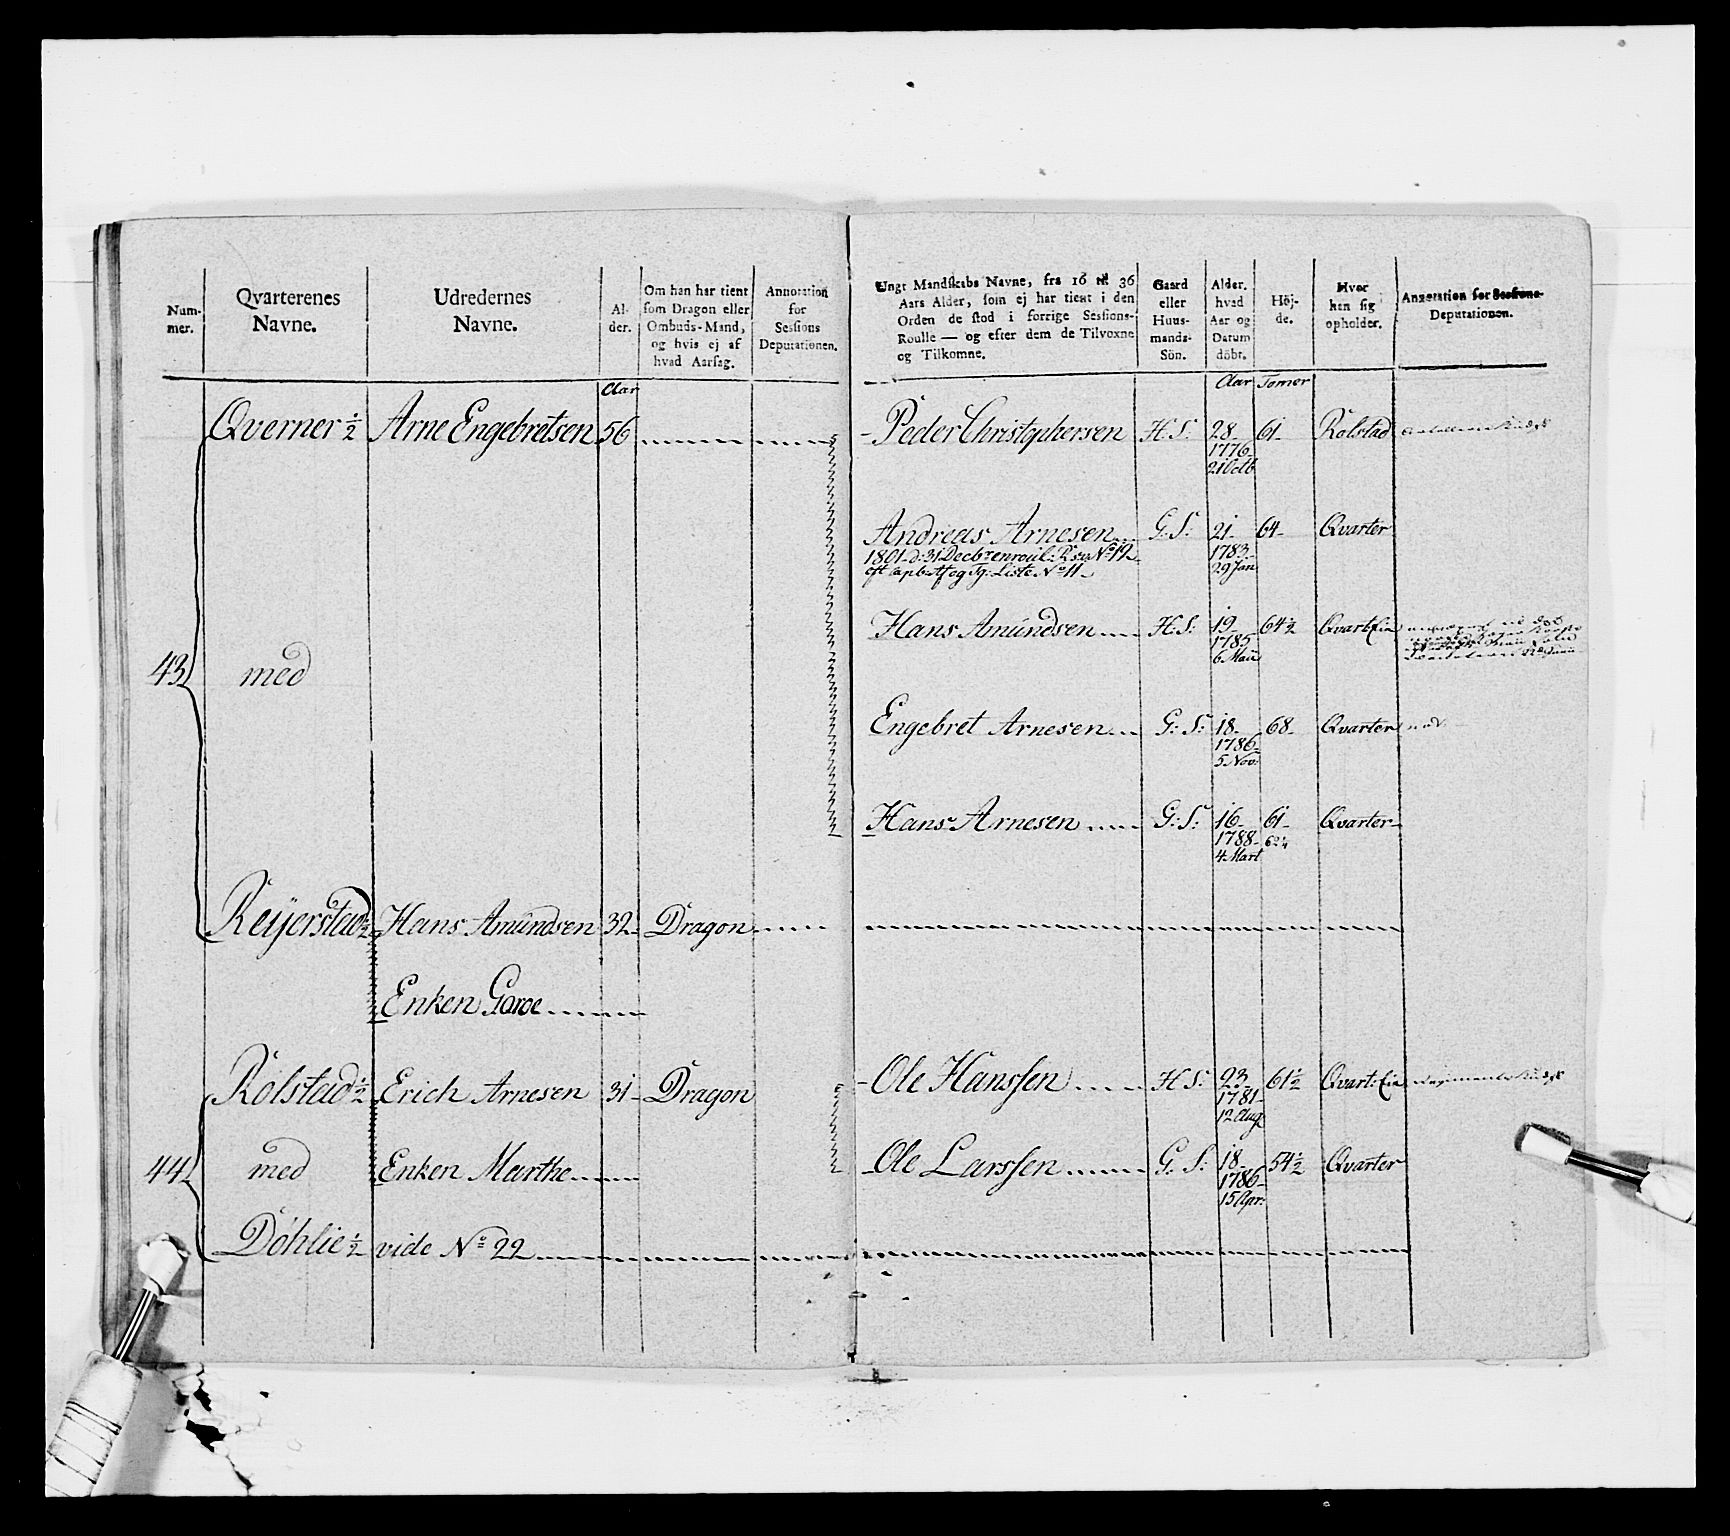 Num-
mer.
Qvarterenes
Navne.
Udredernes
Navne.
Al-
der.
Om han har tient
som Dragon eller
Ombuds-Mand,
og hvis ej af
hvad Aarsag.
Annotation
for
Sessions
Deputationen.
Aar
Qverner ½ Arne Engebretsen 56
43 med
Reijerstad ½ Hans Amundsen 32 Dragon
Enken Goroe
Rolstad ½ Erich Arnesen 31 Dragon
44 med Enken Marthe
Döhlie ½ vide No 22
Ungt Mandskabs Navne, fra 16 til 36
Aars Alder, som ej har tient i den
Orden de stod i forrige Sessions-
Roulle — og efter dem de Tilvoxne
og Tilkomne.
Gaard
eller
Huus-
mands-
Sön.
Alder.
hvad
Aar og
Datum
döbt.
Höj-
de.
Hvor
han sig
opholder.
Annotation for Sessions-
Deputationen.
Aar Tomer
Peder Christophersen H: S: 28 61 Rolstad
1776
21 Octb
Andreas Arnesen G: S: 21 64 Qvarter
1801 d: 31 Decbr enroul: No 19
1783
29 Jan
Liste No 11
Hans Amundsen H: S: 19 64½ Qvart: Eie
1785
6 Maii
Engebret Arnesen G: S: 18 68 Qvarter
1786
5 Nov:
Hans Arnesen G: S: 16 61 Qvarter
1788 62¼
4 Mart
Ole Hanssen H: S: 23 61½ Qvart: Eie
1781
12 Aug
Ole Larssen G: S: 18 54½ Qvarter
1786
15 Apr: